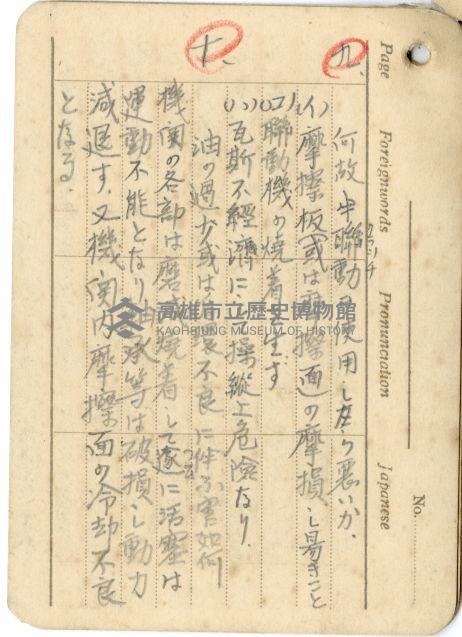 No.
Page Foreignwords Pronunciation Japanese
九、
何故半聯動ヲ使用したら悪いか.
クラッチ
(イ)摩擦板或は摩擦面の摩損し易きこと
(ロ)聯動機の焼着を生ず
(ハ)瓦斯不経済にして操縦上危険なり.
十、
油の過少或は循環不良に伴ふ害如何
機関の各部は磨減焼着して遂に活塞は
ついに
運動不能となり軸承等は破損し動力
減退す.又機関内摩擦面の冷却不良
となる.
高雄市立歷史博物館
KAOHSIUNG MUSEUM OF HISTORY